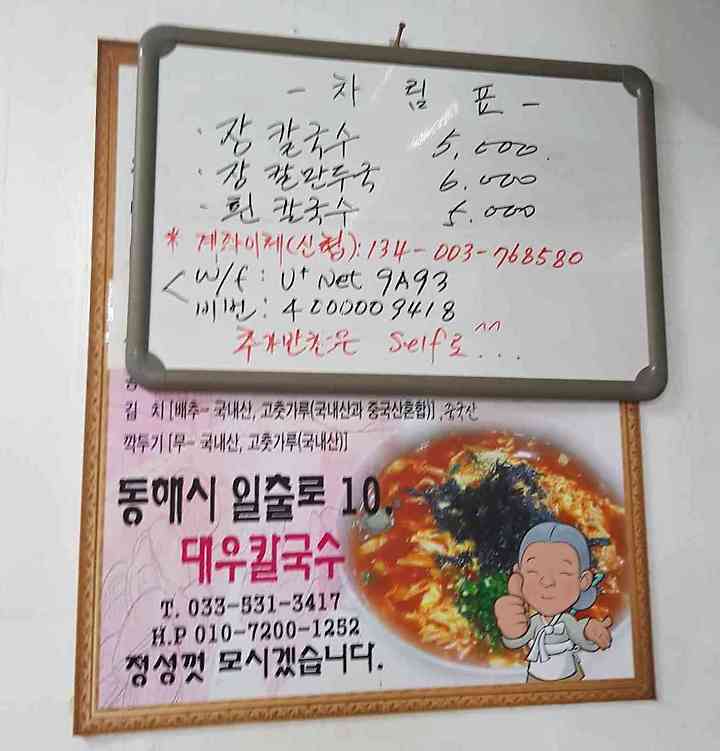 - 차 림 표 -
· 장 칼국수 5,000.
· 장 칼만두국 6.000
- 흰 칼국수 5.000
* 계좌이체(신협): 134-003-768580
< W/f : U⁺ Net 9A93
비번: 4000009418
추가반찬은 Self로^^...
김 치 [배추- 국내산, 고춧가루(국내산과 중국산혼합)], 중국산
깍두기 [무- 국내산, 고춧가루(국내산)]
동해시 일출로 10,
대우칼국수
T. 033-531-3417
H.P 010-7200-1252
정성껏 모시겠습니다.